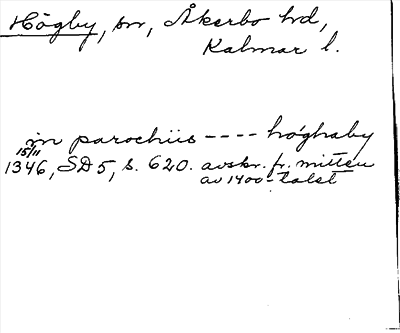 Högby, sn, Åkerbo hd,
Kalmar l.
in parochiis ---- høghaby
15/11
1346, SD 5, s. 620. avskr. fr. mitten
av 1400-talet